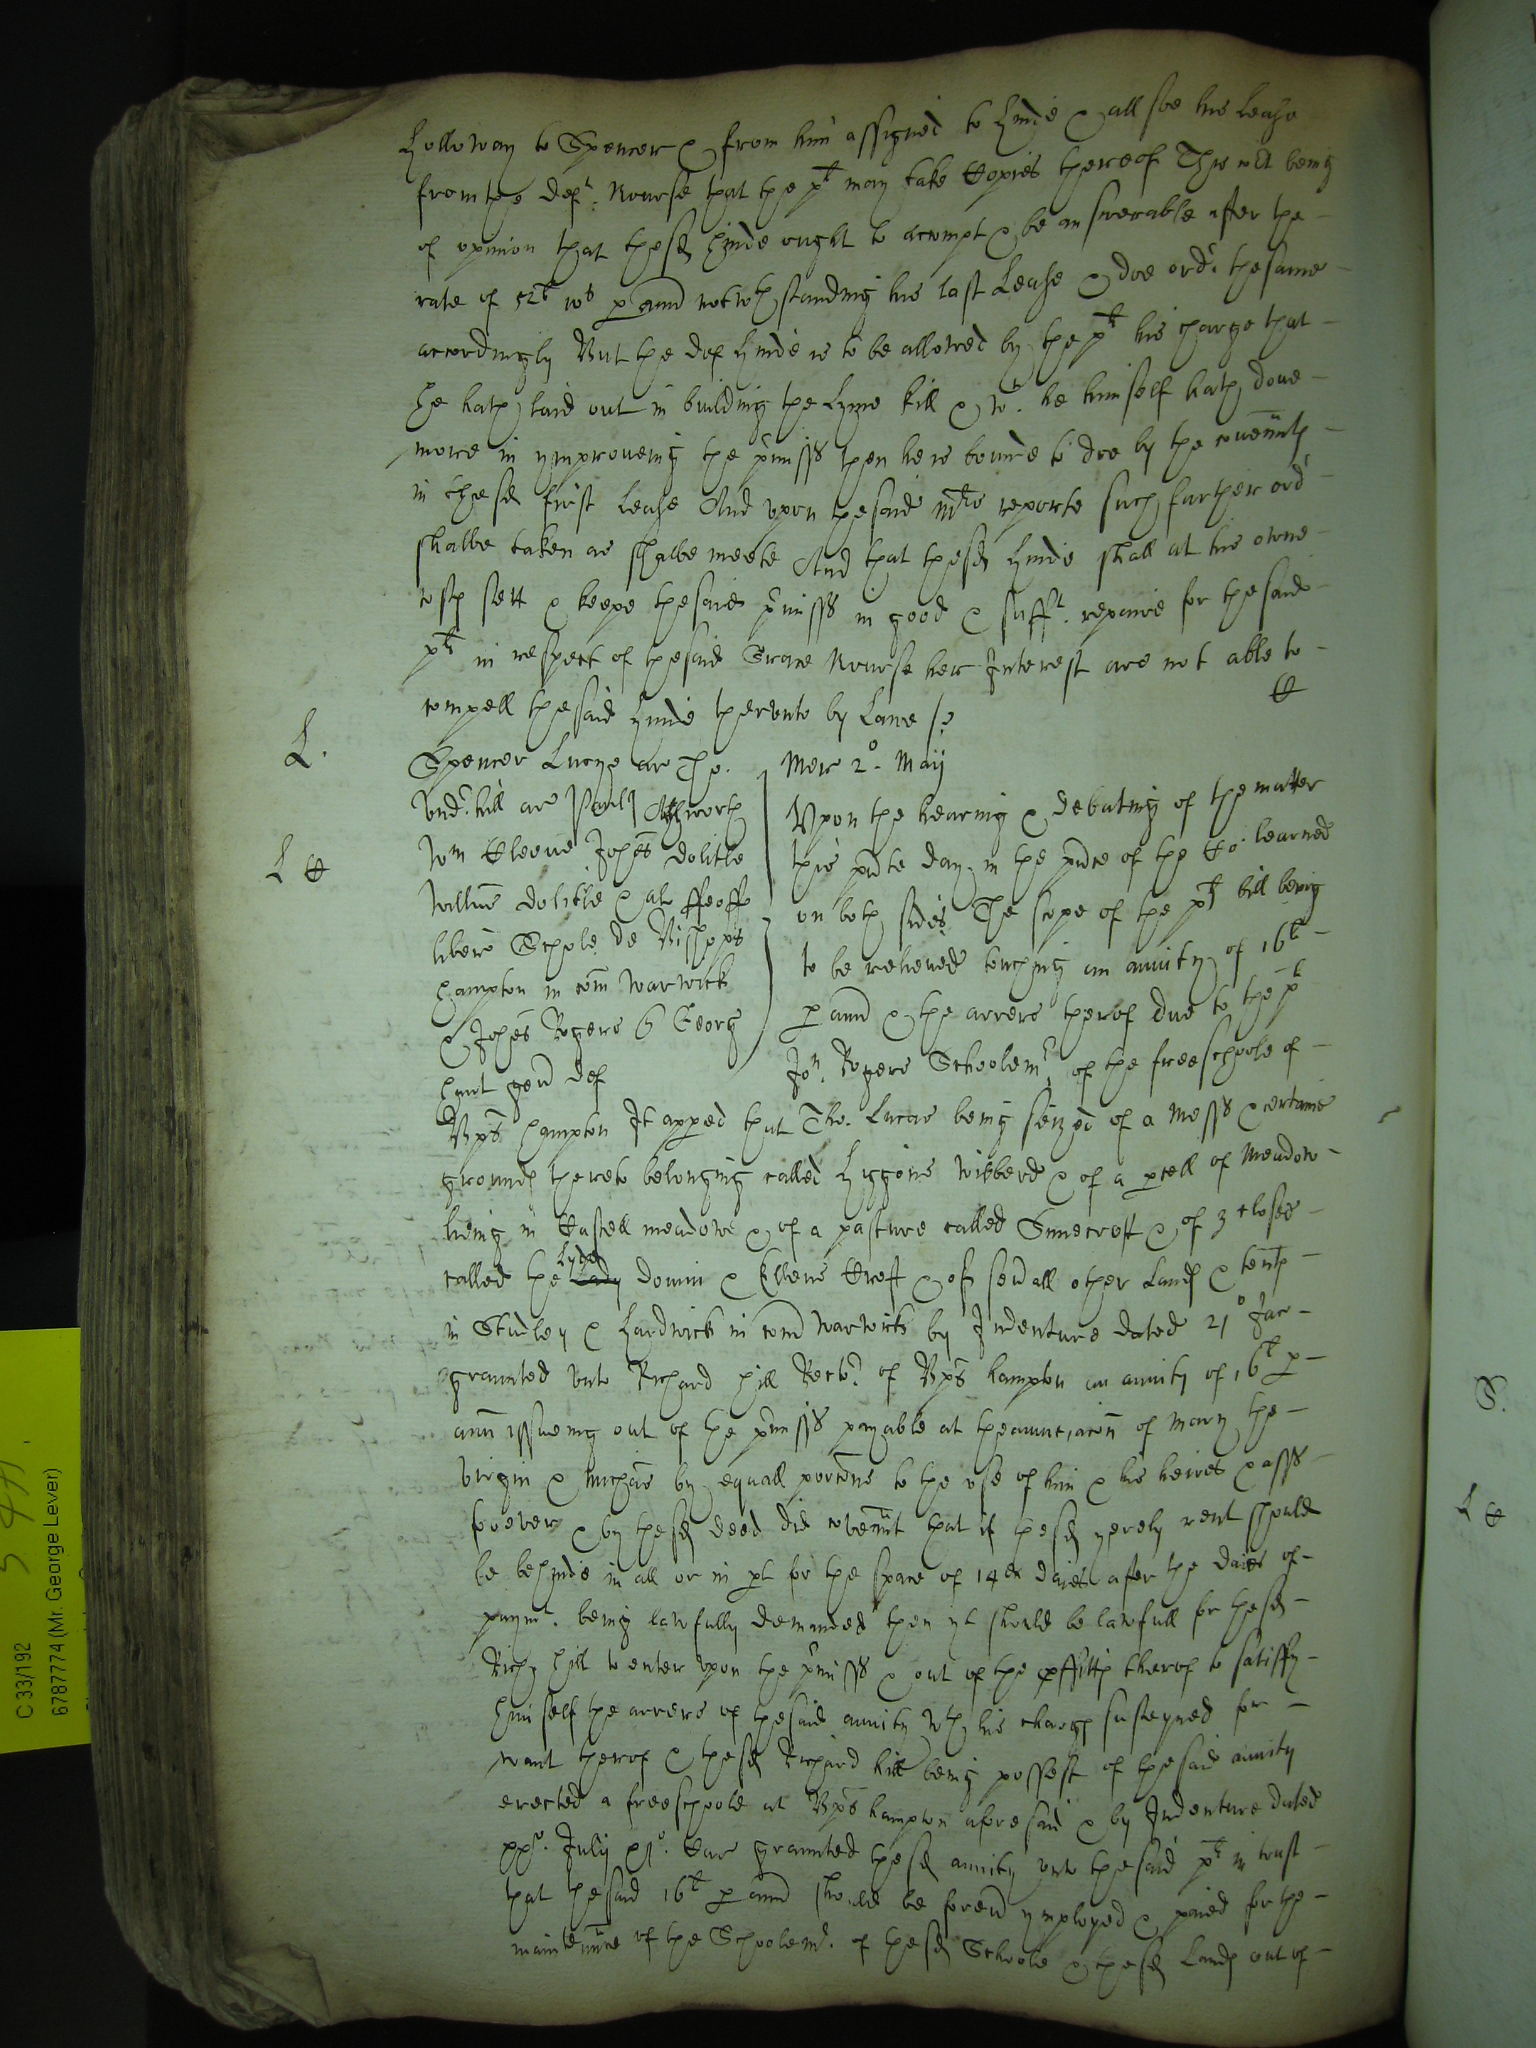 Holloway to Spencer & from him assigned to Hinde & allsoe his lease
from the deft. Nourse that the plt may take Copies thereof This Court being
of opinion that the sd Hinde ought to accompt & be answerable after the
rate of 52l 10s p annu notwthstanding his last Lease & doe ordr. the same
accordingly But the def Hinde is to be allowed by the plt his charge that
he hath laid out in building the Lyme kill & wt. he himself hath done
more in ymproveing the pmisss then he is bound to doe by the covennts
in the sd first lease And upon the said Mrs reporte such further ordr
shalbe taken as shalbe meete And that the sd Hinde shall at his owne
costs sett & keepe the said pmisss in good & sufft. repaire for the said
plt in respect of the said Grace Nourse her Interest are not able to
compell the said Hinde therunto by Lawe
L.
Spencer Lucye ar Tho.
Undrhill ar Pawl Ashworth
Wm Cleeve Johes dolitle
Willm dolitle & al ffeoffe
libere Schole de Bishopps
hampton in com Warwick
& Johes Rogers Q Georg
Hunt gen def
L C
Mer 2o. Maij
Upon the hearing & debating of the matter
this pnte day in the pnce of the Co: learned
on both sides The scope of the plt bill being
to be releived touching an anuity of 16l
p annu & the arrers therof due to the plt
Jon. Rogers Schoolemr. of the freeschoole of
Bps hampton It apped that Tho. Lucas being seized of a Messs & certaine
grounds thereto belonging called Higgins Wibberd & of a pcell of Meadow
lieing in Castell meadowe & of a pasture called Sinecroft & of 3 closes
called the Lyde Lady downe & Ellens Croft & of sevall other Lands & tents
in Studley & Hardwick in com Warwick by Indenture dated 21o Jac
graunted unto Richard Hill Rector of Bps hampton an anuity of 16l p
ann issueing out of the pmisss payable at the annuntiacon of Mary the
virgin & Michas by equall porcons to the use of him & his heires & asss
forever & by the sd deed did covennt that if the sd yerely rent should
be behinde in all or in pt for the space of 14en daies after the daies of
paymt. being lawfully demanded then yt should be lawfull for the sd
Rich Hill to enter upon the pmisss & out of the pffitts therof to satisfy
himself the arrers of the said anuity wth his charge susteyned for
want therof & the sd Richard Hill being possest of the said anuity
erected a freeschoole at Bps hampton aforesaid & by Indenture dated
July Car graunted the sd anuity unto the said plt in trust
that the said 16l p annu should be forevr ymployed & paied for the
maintennce of the Schoolemr. of the sd Schoole & the sd Lands out of
S.
L C
C 33/192
6787774 (Mr. George Lever)